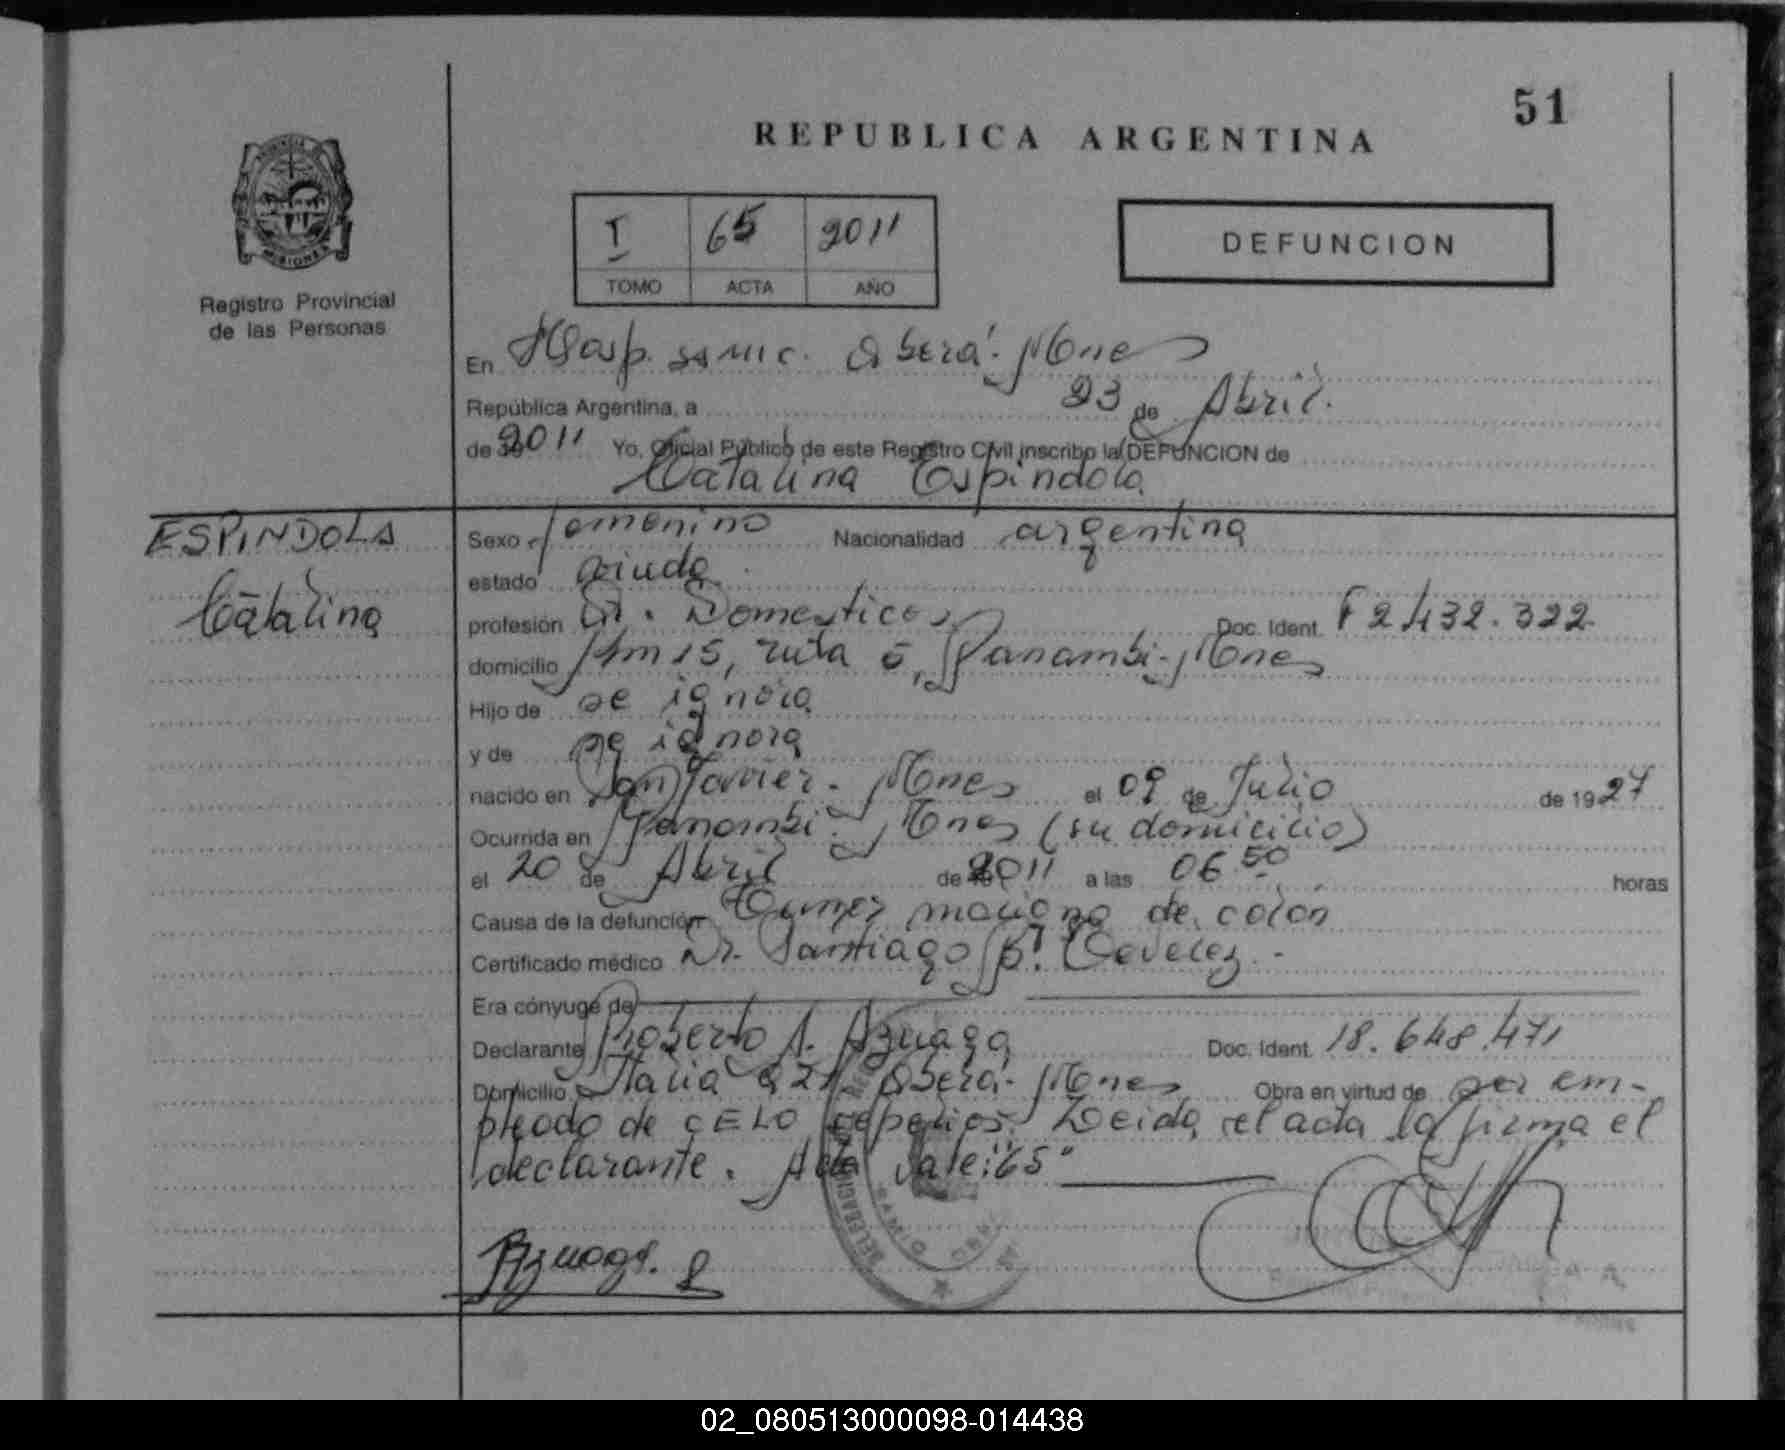 51
REPUBLICA ARGENTINA
PROVINCIA
MISIONES
Registro Provincial
de las Personas
I 65 2011
TOMO ACTA AÑO
DEFUNCION
En Hosp. samic. Oberá. Mnes
República Argentina, a 23 de Abril.
de 2011 Yo, Oficial Público de este Registro Civil inscribo la DEFUNCION de
Catalina Espindola
ESPINDOLA
Catalina
Sexo femenino Nacionalidad argentina
estado viuda.
profesión Q. Domesticos Doc. Ident. F 2.432.322
domicilio Km 15, ruta 5, Panambi-Mnes
Hijo de se ignora
y de se ignora
nacido en San Javier. Mnes el 09 de Julio de 1927
Ocurrida en Panambi. Mnes (su domicilio)
el 20 de Abril de 2011 a las 06.50 horas
Causa de la defunción Tumor maligno de colon
Certificado médico Dr. Santiago
Era cónyuge de
Declarante Roberto A. Azuaga Doc. Ident. 18.648.471
Domicilio Italia Oberá. Mnes Obra en virtud de ser em-
pleado de CELO sepelios. Leida el acta la firma el
declarante. Acta Vale: "65"
Azuaga. R
02_080513000098-014438